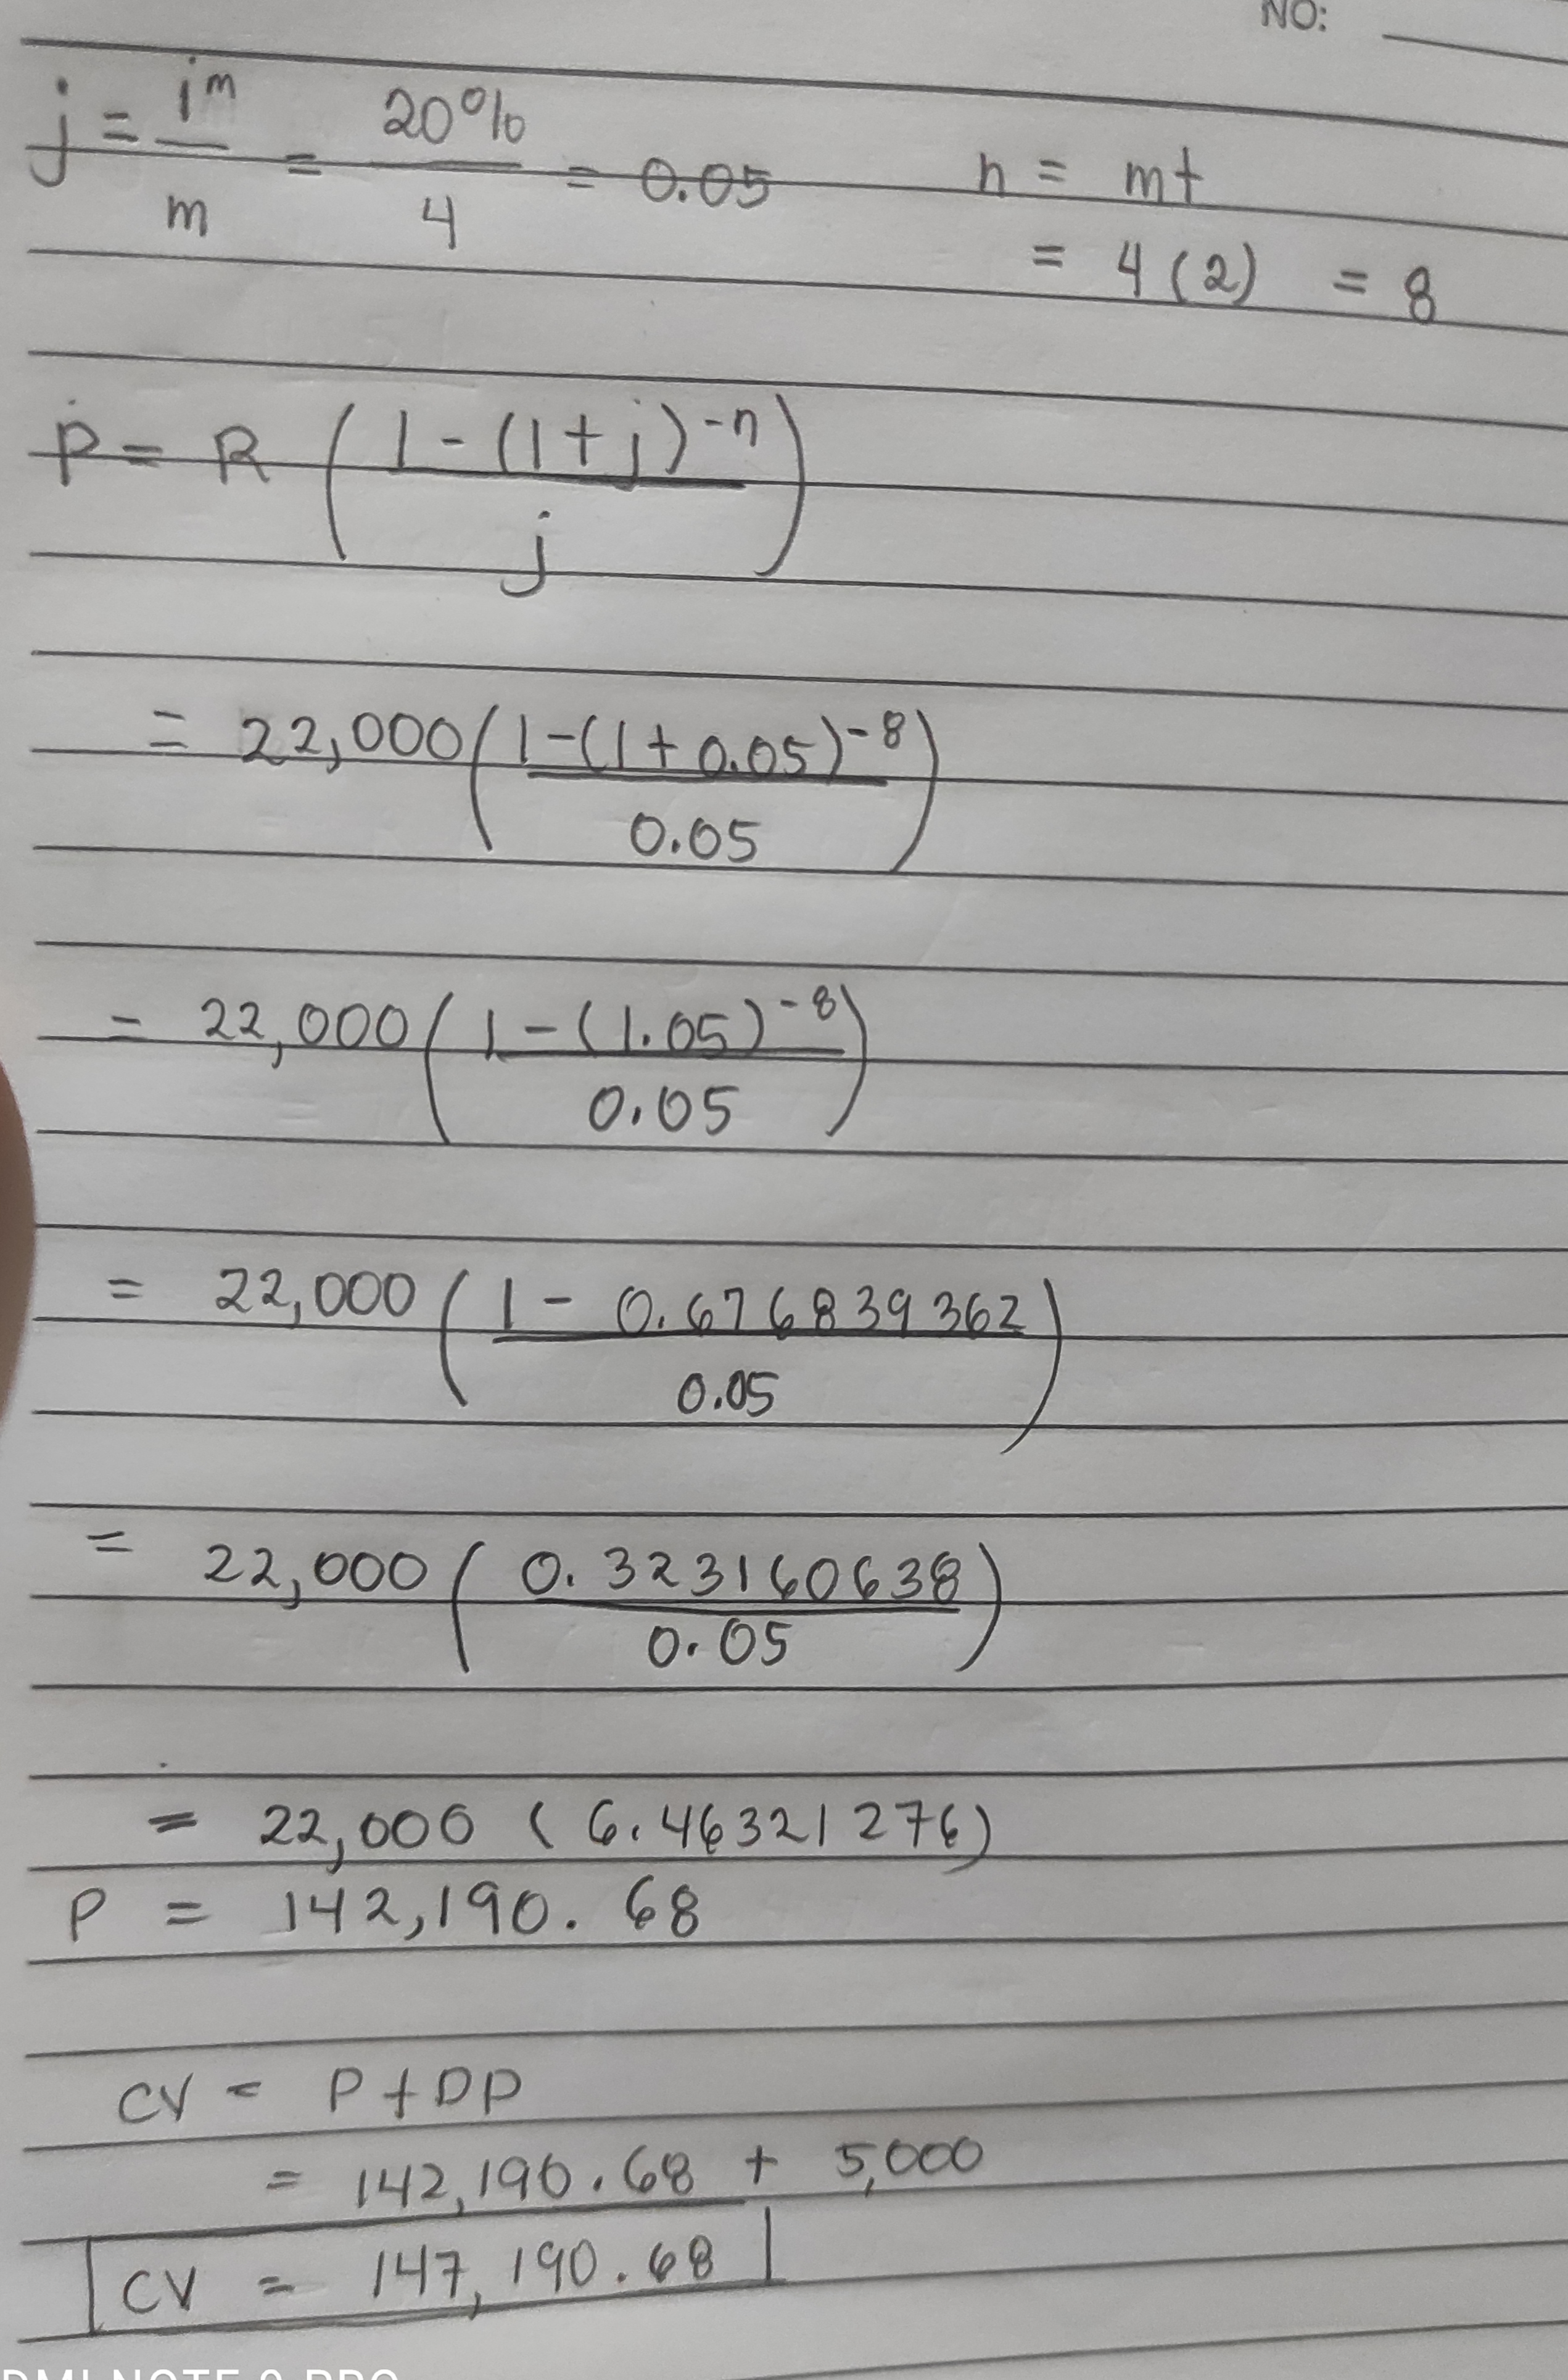 NO:
j = i^m / m = 20% / 4 = 0.05
n = mt
= 4 (2) = 8
P = R ( 1 - (1 + j)^-n / j )
= 22,000 ( 1 - (1 + 0.05)^-8 / 0.05 )
= 22,000 ( 1 - (1.05)^-8 / 0.05 )
= 22,000 ( 1 - 0.676839362 / 0.05 )
= 22,000 ( 0.323160638 / 0.05 )
= 22,000 ( 6.46321276 )
P = 142,190.68
CV = P + DP
= 142,190.68 + 5,000
CV = 147,190.68